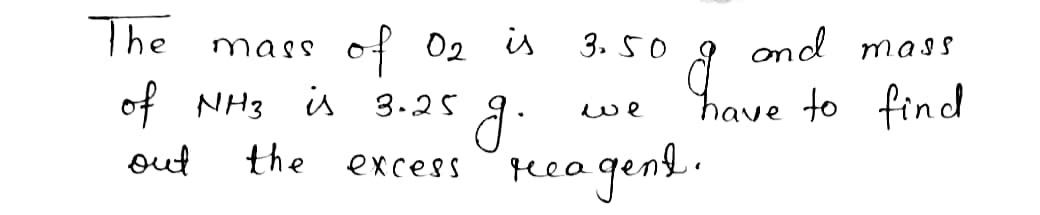 The mass of O2 is 3.50 g and mass
of NH3 is 3.25 g. we have to find
out the excess reeagent.